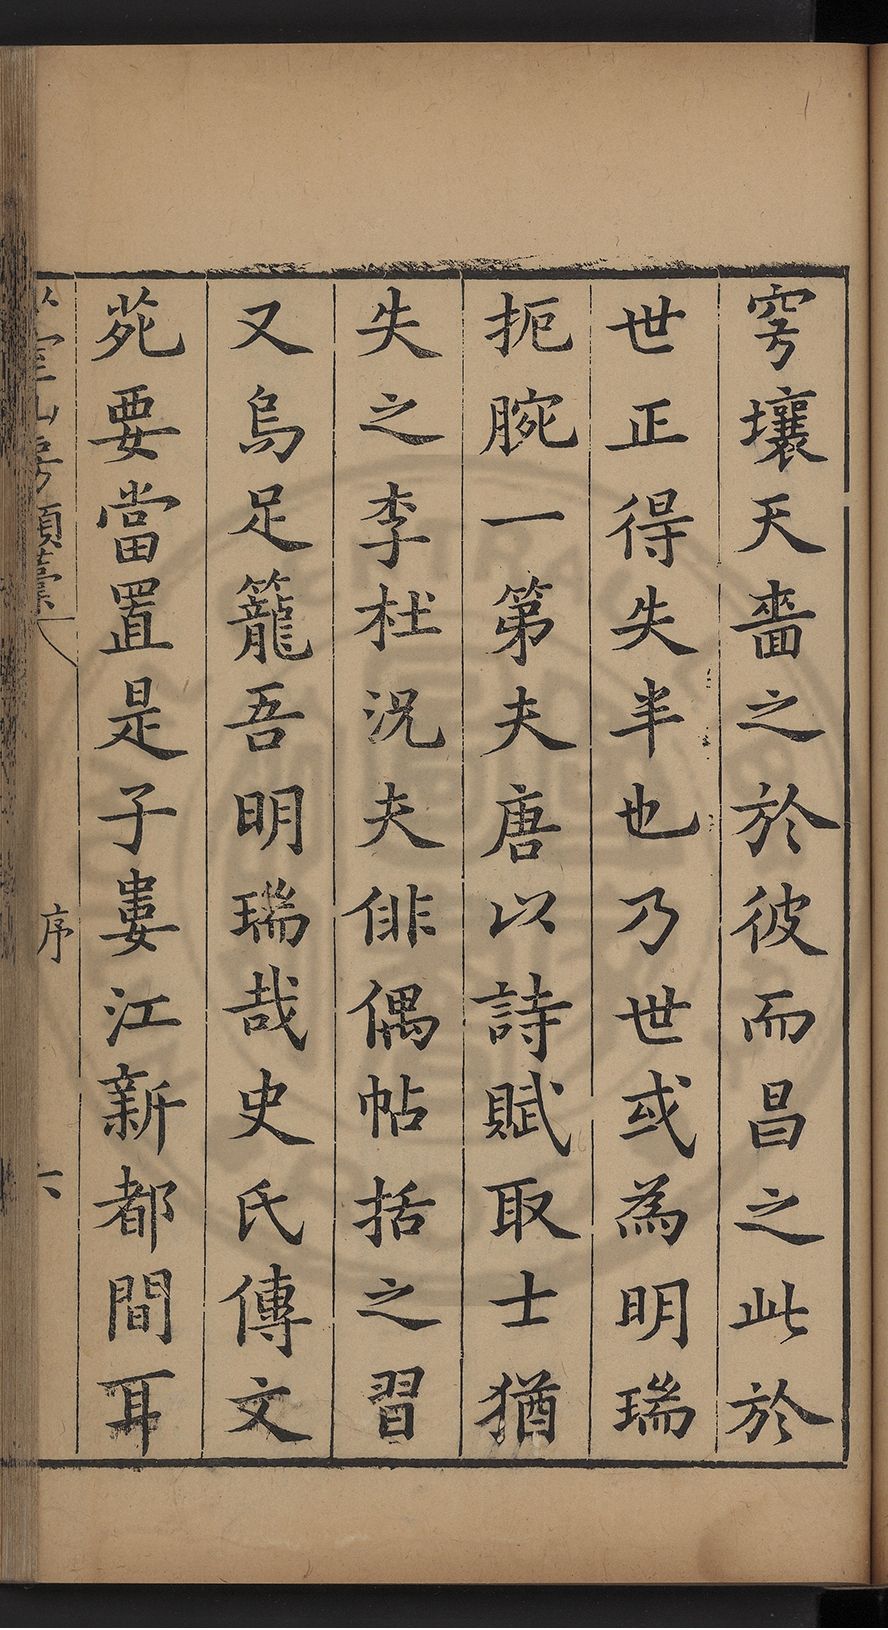 穹壤天嗇之於彼而昌之此於
世正得失半也乃世或為明瑞
扼腕一第夫唐以詩賦取士猶
失之李杜況夫俳偶帖括之習
又烏足籠吾明瑞哉史氏傳文
苑要當置是子婁江新都間耳
山房類藁
序
六